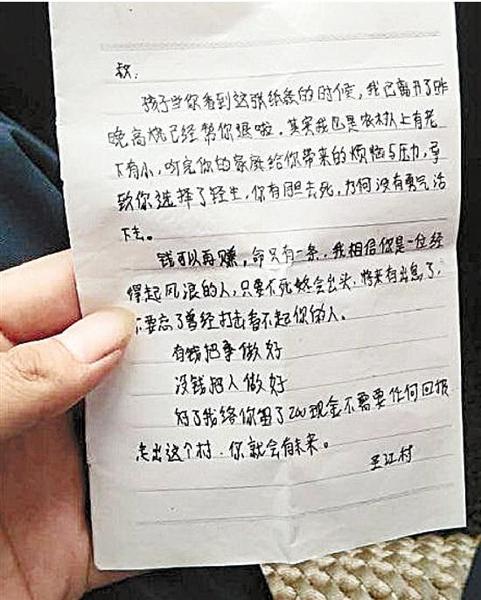 叔，
孩子当你看到这张纸条的时候，我已离开了昨
晚高烧已经帮你退啦。其实我也是农村人上有老
下有小，听完你的家庭给你带来的烦恼与压力，导
致你选择了轻生，你有胆去死，为何没有勇气活
下去。
钱可以再赚，命只有一条，我相信你是一位经
得起风浪的人，只要不死终会出头，将来有出息了，
不要忘了曾经打击看不起你的人。
有钱把事做好
没钱把人做好
对了我给你留了200现金不需要任何回报
走出这个村，你就会有未来。
王江村